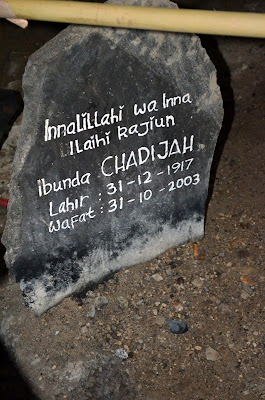 Innalillahi wa Inna
Ilaihi Rajiun
Ibunda CHADIJAH
Lahir : 31-12-1917
Wafat : 31-10-2003